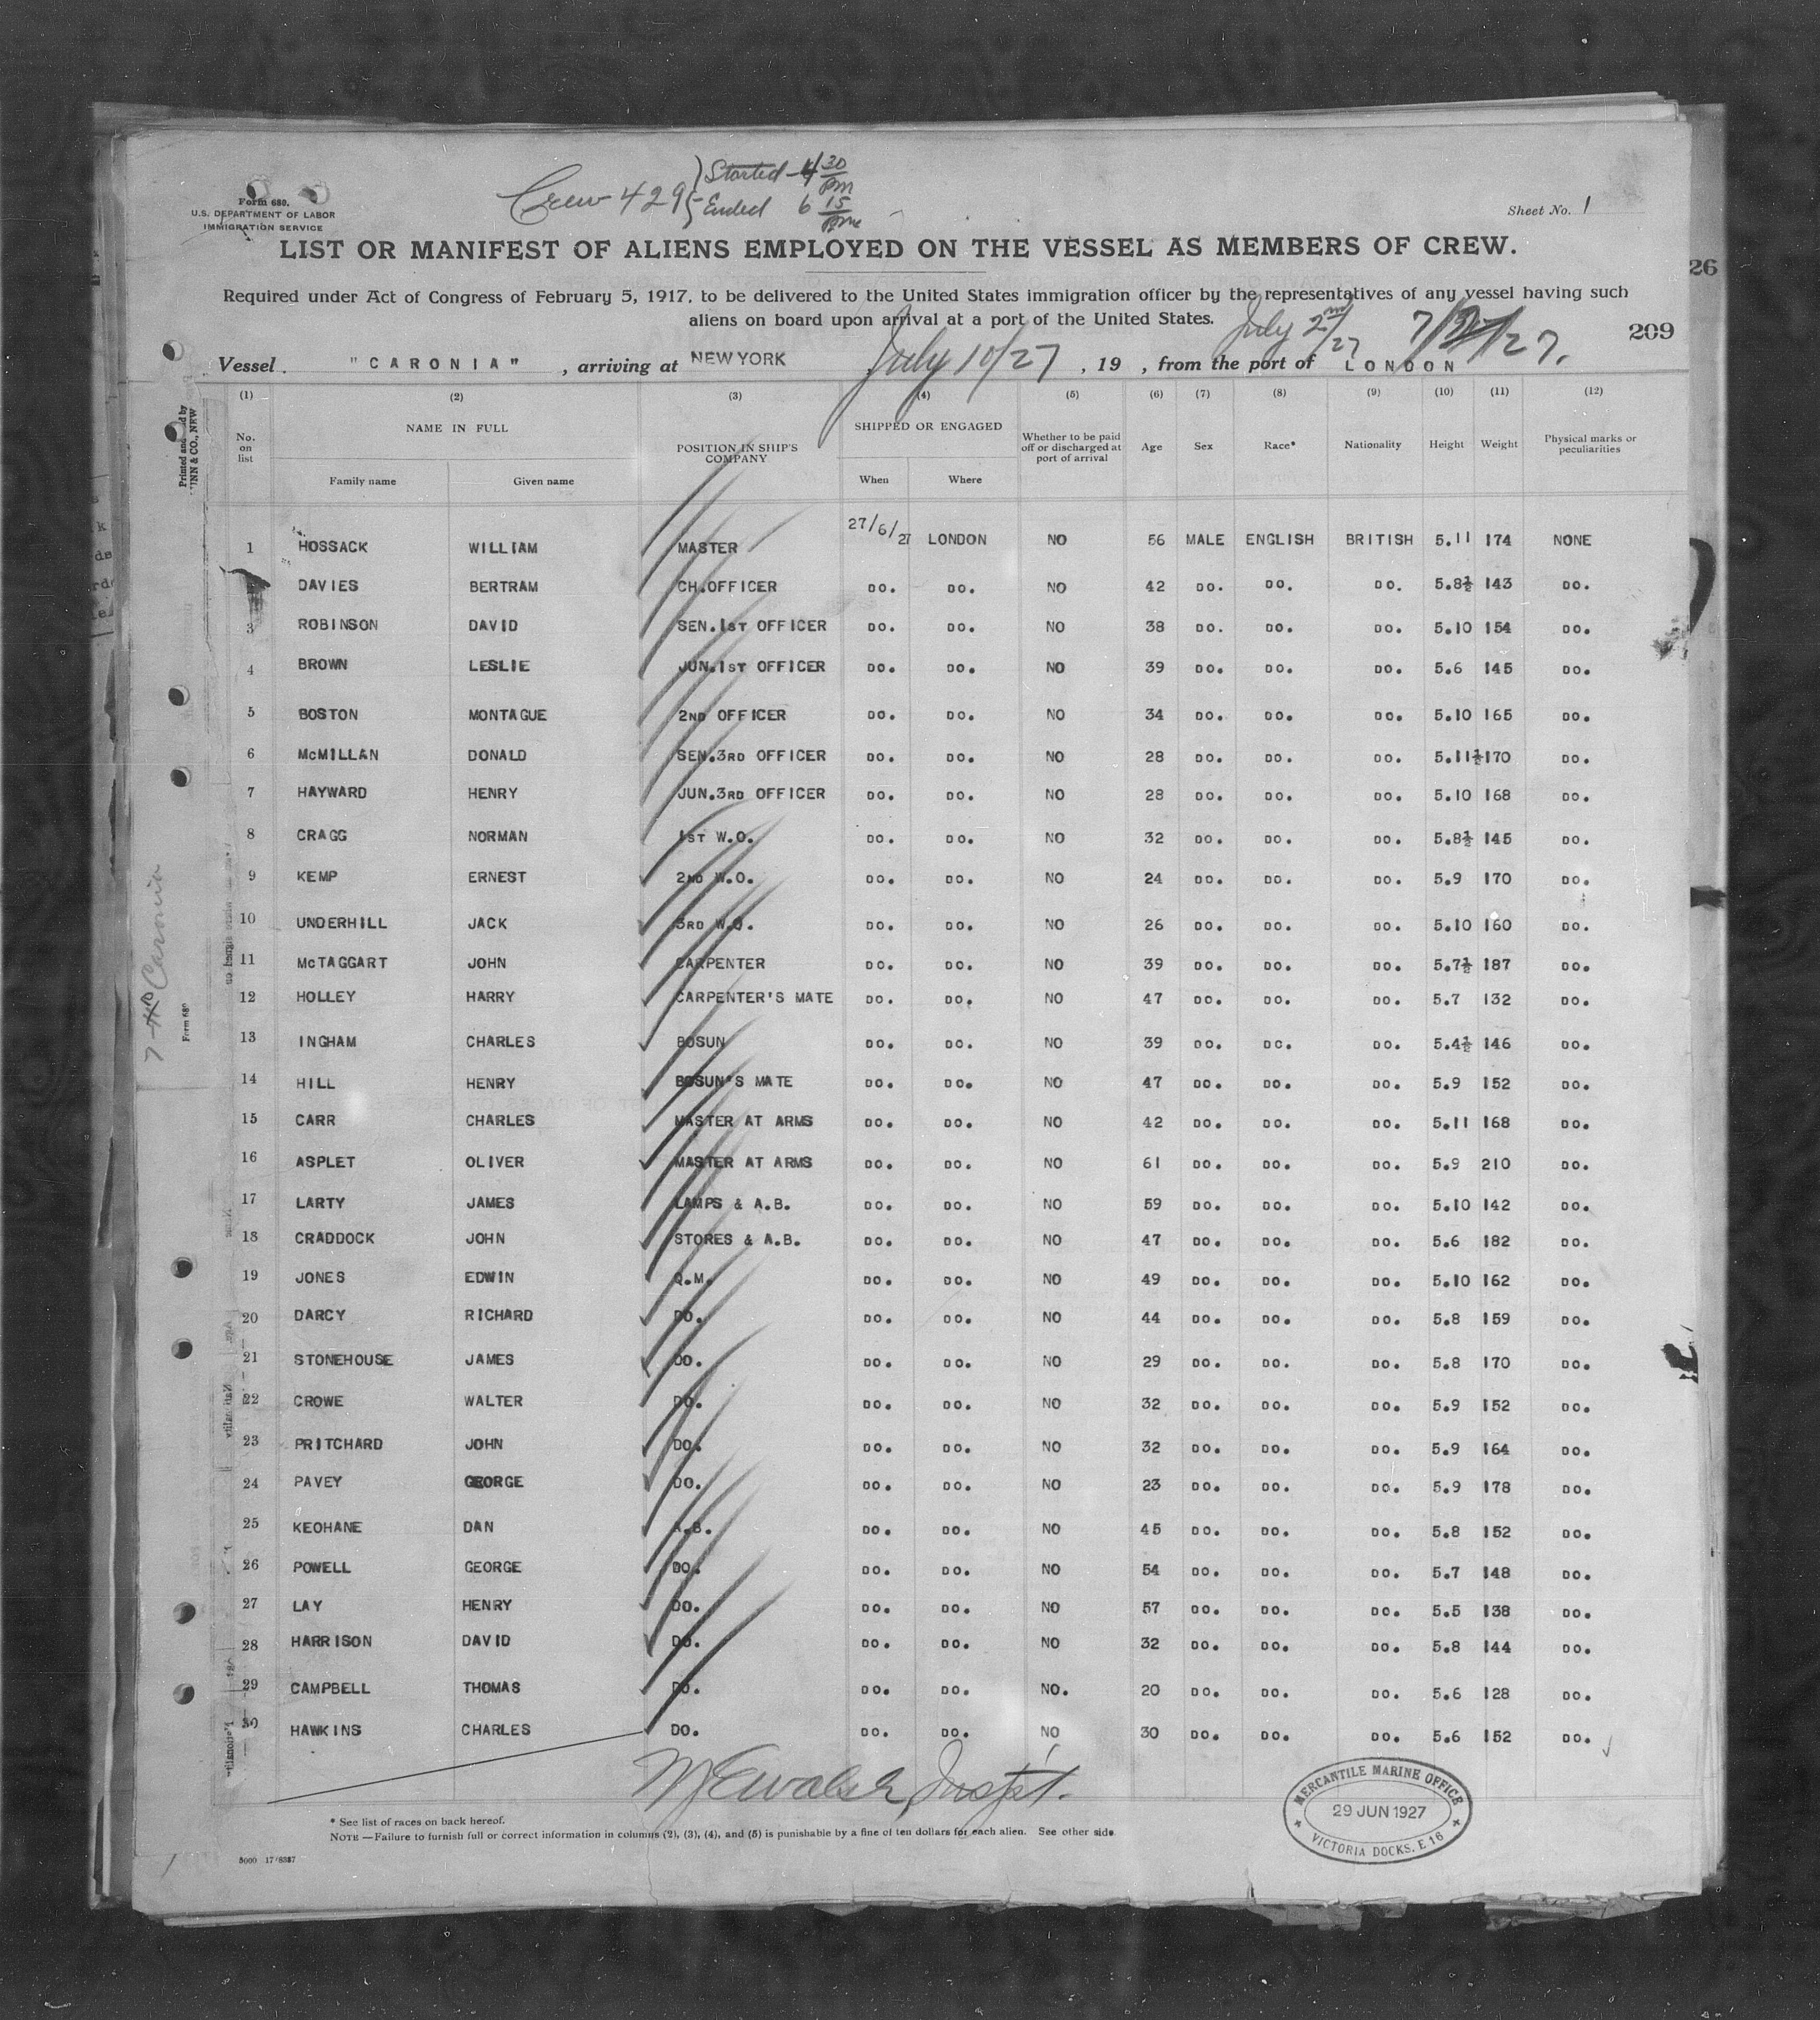 Crew 429 } Started - 4 30 pm
Ended 6 15 pm
Form 680.
U.S. DEPARTMENT OF LABOR
IMMIGRATION SERVICE
Sheet No. 1
LIST OR MANIFEST OF ALIENS EMPLOYED ON THE VESSEL AS MEMBERS OF CREW.
26
Required under Act of Congress of February 5, 1917, to be delivered to the United States immigration officer by the representatives of any vessel having such
aliens on board upon arrival at a port of the United States.
July 2nd/27
209
Vessel "CARONIA", arriving at NEW YORK July 10/27, 19 , from the port of LONDON
(1) (2) (3) (4) (5) (6) (7) (8) (9) (10) (11) (12)
No. on list NAME IN FULL POSITION IN SHIP'S COMPANY SHIPPED OR ENGAGED Whether to be paid off or discharged at port of arrival Age Sex Race* Nationality Height Weight Physical marks or peculiarities
Family name Given name When Where
1 HOSSACK WILLIAM MASTER 27/6/27 LONDON NO 56 MALE ENGLISH BRITISH 5.11 174 NONE
DAVIES BERTRAM CH.OFFICER DO. DO. NO 42 DO. DO. DO. 5.8½ 143 DO.
3 ROBINSON DAVID SEN.1ST OFFICER DO. DO. NO 38 DO. DO. DO. 5.10 154 DO.
4 BROWN LESLIE JUN.1ST OFFICER DO. DO. NO 39 DO. DO. DO. 5.6 145 DO.
5 BOSTON MONTAGUE 2ND OFFICER DO. DO. NO 34 DO. DO. DO. 5.10 165 DO.
6 McMILLAN DONALD SEN.3RD OFFICER DO. DO. NO 28 DO. DO. DO. 5.11½ 170 DO.
7 HAYWARD HENRY JUN.3RD OFFICER DO. DO. NO 28 DO. DO. DO. 5.10 168 DO.
8 CRAGG NORMAN 1ST W.O. DO. DO. NO 32 DO. DO. DO. 5.8½ 145 DO.
9 KEMP ERNEST 2ND W.O. DO. DO. NO 24 DO. DO. DO. 5.9 170 DO.
10 UNDERHILL JACK 3RD W.O. DO. DO. NO 26 DO. DO. DO. 5.10 160 DO.
11 McTAGGART JOHN CARPENTER DO. DO. NO 39 DO. DO. DO. 5.7½ 187 DO.
12 HOLLEY HARRY CARPENTER'S MATE DO. DO. NO 47 DO. DO. DO. 5.7 132 DO.
13 INGHAM CHARLES BOSUN DO. DO. NO 39 DO. DO. DO. 5.4½ 146 DO.
14 HILL HENRY BOSUN'S MATE DO. DO. NO 47 DO. DO. DO. 5.9 152 DO.
15 CARR CHARLES MASTER AT ARMS DO. DO. NO 42 DO. DO. DO. 5.11 168 DO.
16 ASPLET OLIVER MASTER AT ARMS DO. DO. NO 61 DO. DO. DO. 5.9 210 DO.
17 LARTY JAMES LAMPS & A.B. DO. DO. NO 59 DO. DO. DO. 5.10 142 DO.
18 CRADDOCK JOHN STORES & A.B. DO. DO. NO 47 DO. DO. DO. 5.6 182 DO.
19 JONES EDWIN Q.M. DO. DO. NO 49 DO. DO. DO. 5.10 162 DO.
20 DARCY RICHARD DO. DO. DO. NO 44 DO. DO. DO. 5.8 159 DO.
21 STONEHOUSE JAMES DO. DO. DO. NO 29 DO. DO. DO. 5.8 170 DO.
22 CROWE WALTER DO. DO. DO. NO 32 DO. DO. DO. 5.9 152 DO.
23 PRITCHARD JOHN DO. DO. DO. NO 32 DO. DO. DO. 5.9 164 DO.
24 PAVEY GEORGE DO. DO. DO. NO 23 DO. DO. DO. 5.9 178 DO.
25 KEOHANE DAN A.B. DO. DO. NO 45 DO. DO. DO. 5.8 152 DO.
26 POWELL GEORGE DO. DO. DO. NO 54 DO. DO. DO. 5.7 148 DO.
27 LAY HENRY DO. DO. DO. NO 57 DO. DO. DO. 5.5 138 DO.
28 HARRISON DAVID DO. DO. DO. NO 32 DO. DO. DO. 5.8 144 DO.
29 CAMPBELL THOMAS DO. DO. DO. NO. 20 DO. DO. DO. 5.6 128 DO.
30 HAWKINS CHARLES DO. DO. DO. NO 30 DO. DO. DO. 5.6 152 DO.
MERCANTILE MARINE OFFICE
29 JUN 1927
VICTORIA DOCKS. E 16
* See list of races on back hereof.
NOTE — Failure to furnish full or correct information in columns (2), (3), (4), and (5) is punishable by a fine of ten dollars for each alien. See other side.
Caronia